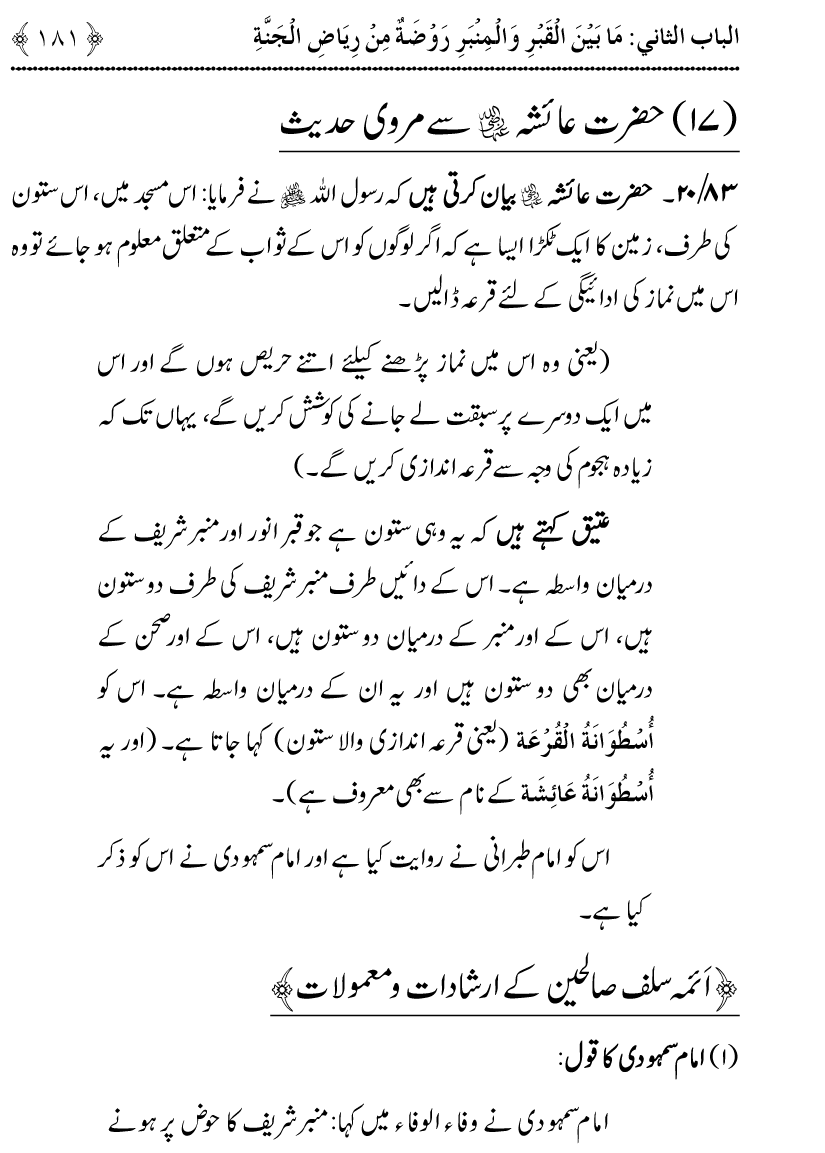 الباب الثاني: مَا بَيْنَ الْقَبْرِ وَالْمِنْبَرِ رَوْضَةٌ مِنْ رِيَاضِ الْجَنَّةِ ﴿١٨١﴾
(۱۷) حضرت عائشہ رضی اللہ عنہا سے مروی حدیث
۲۰/۸۳۔ حضرت عائشہ رضی اللہ عنہا بیان کرتی ہیں کہ رسول اللہ ﷺ نے فرمایا: اس مسجد میں، اس ستون
کی طرف، زمین کا ایک ٹکڑا ایسا ہے کہ اگر لوگوں کو اس کے ثواب کے متعلق معلوم ہو جائے تو وہ
اس میں نماز کی ادائیگی کے لئے قرعہ ڈالیں۔
(یعنی وہ اس میں نماز پڑھنے کیلئے اتنے حریص ہوں گے اور اس
میں ایک دوسرے پر سبقت لے جانے کی کوشش کریں گے، یہاں تک کہ
زیادہ ہجوم کی وجہ سے قرعہ اندازی کریں گے۔)
عتیق کہتے ہیں کہ یہ وہی ستون ہے جو قبر انور اور منبر شریف کے
درمیان واسطہ ہے۔ اس کے دائیں طرف منبر شریف کی طرف دو ستون
ہیں، اس کے اور منبر کے درمیان دو ستون ہیں، اس کے اور صحن کے
درمیان بھی دو ستون ہیں اور یہ ان کے درمیان واسطہ ہے۔ اس کو
أُسْطُوَانَةُ الْقُرْعَة (یعنی قرعہ اندازی والا ستون) کہا جاتا ہے۔ (اور یہ
أُسْطُوَانَةُ عَائِشَة کے نام سے بھی معروف ہے)۔
اس کو امام طبرانی نے روایت کیا ہے اور امام سمہودی نے اس کو ذکر
کیا ہے۔
﴿اَئمہ سلف صالحین کے ارشادات و معمولات﴾
(۱) امام سمہودی کا قول:
امام سمہودی نے وفاء الوفاء میں کہا: منبر شریف کا حوض پر ہونے